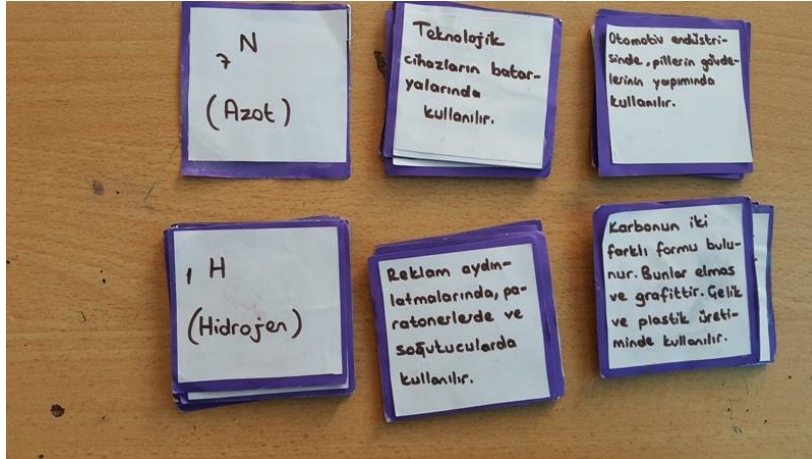 ₇N
(Azot)
Teknolojik
cihazların batar-
yalarında
kullanılır.
Otomotiv endüstri-
sinde, pillerin gövde-
lerinin yapımında
kullanılır.
₁H
(Hidrojen)
Reklam aydın-
latmalarında, pa-
ratonerlerde ve
soğutucularda
kullanılır.
Karbonun iki
farklı formu bulu-
nur. Bunlar elmas
ve grafittir. Çelik
ve plastik üreti-
minde kullanılır.